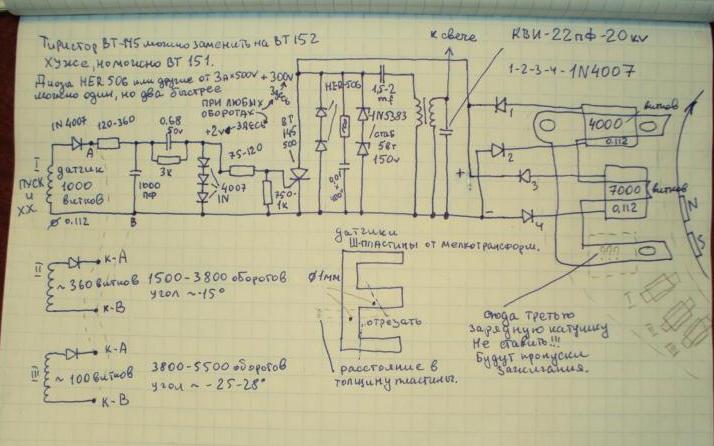 Тиристор ВТ-145 можно заменить на ВТ 152
хуже, но можно ВТ 151.
Диоды HER 506 или другие от 3А×500v
можно один, но два быстрее
+300v
здесь
ПРИ ЛЮБЫХ
ОБОРОТАХ
+2v
здесь
к свече
КВИ-22пф-20кv
1-2-3-4-1N4007
1N 4007
120-360
А
0.68
50v
3к
I
ПУСК
и
ХХ
датчик
1000
витков
ø 0.112
1000
пф
В
4007
1N
75-120
750-
1к
ВТ
145
500
HER-506
1N5383
стаб
5вт
150v
1,5-2
+
-
1
2
3
4
4000
витков
0,112
7000
витков
0,112
N
S
I
II
III
II
к-А
~ 360 витков
к-В
1500-3800 оборотов
угол ~-15°
III
к-А
~ 100 витков
к-В
3800-5500 оборотов
угол ~ -25-28°
датчики
Ш-пластины от мелкотрансформ.
Ø1мм
отрезать
расстояние в
толщину пластины.
сюда третью
зарядную катушку
Не ставить!!!
Будут пропуски
зажигания.